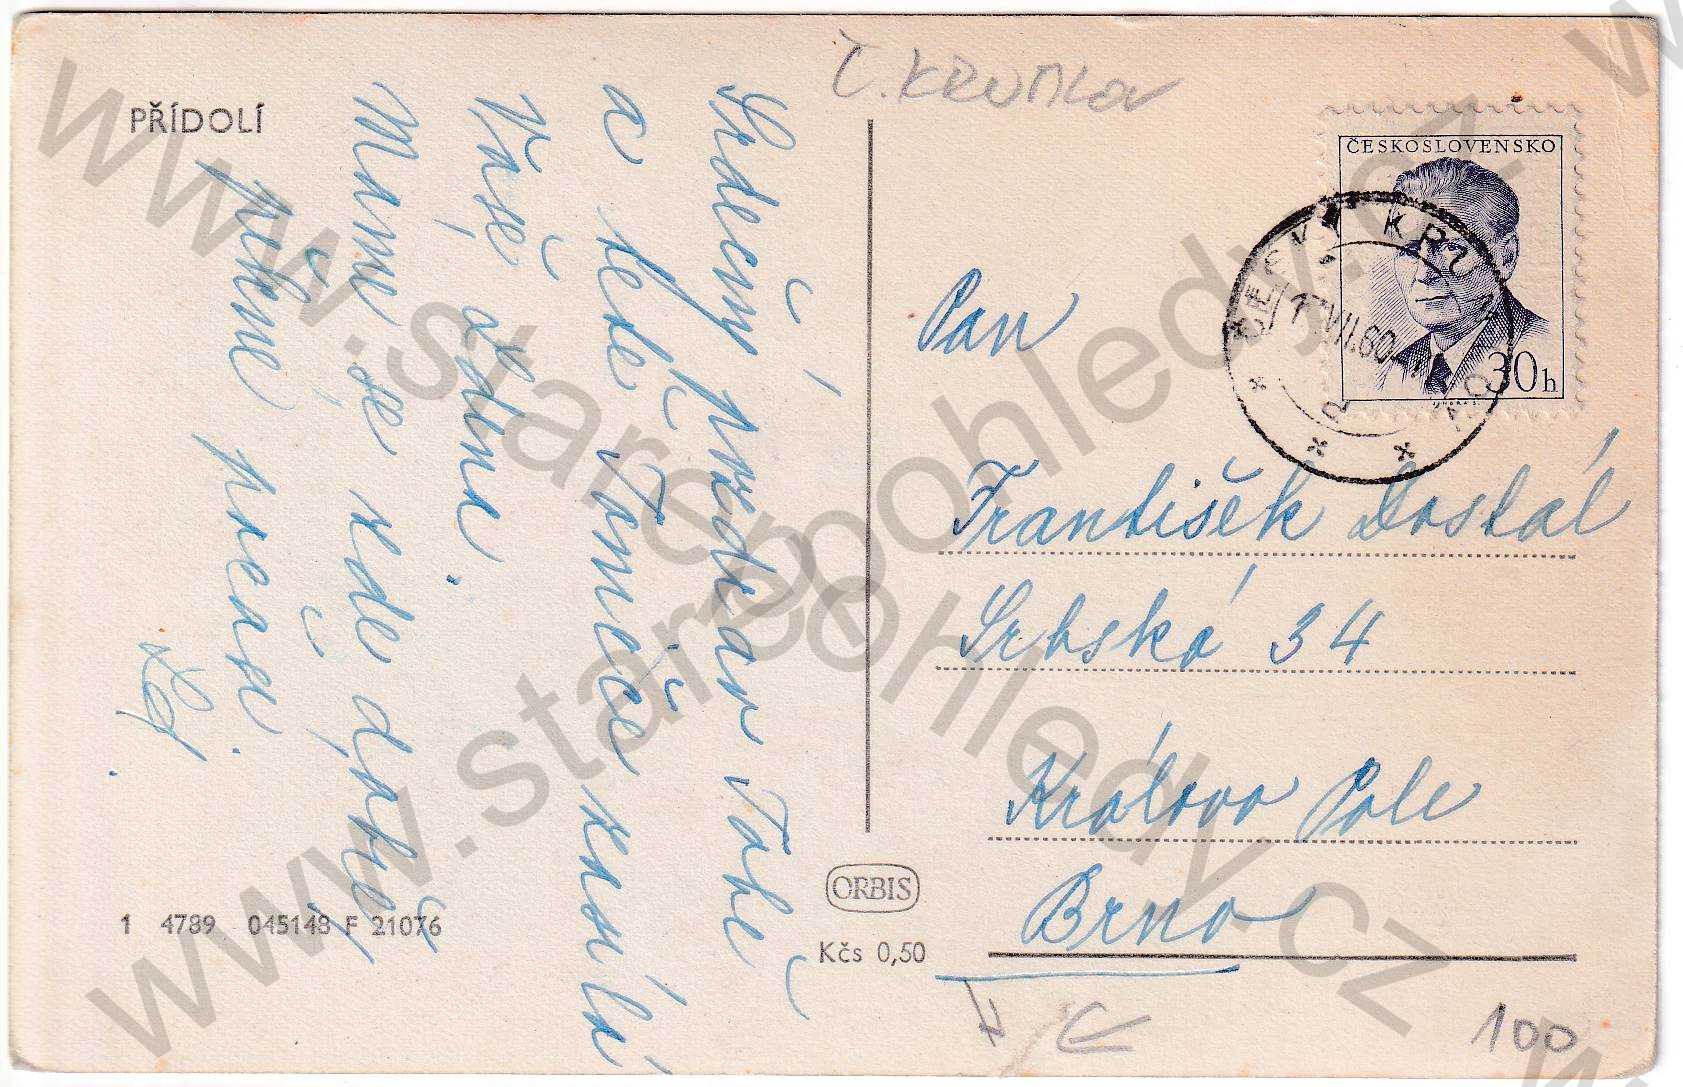 Č. KRUMLOV
PŘÍDOLÍ
Srdečný pozdrav Tobě
a též Tomíče zasílá
Vaše
Máme se zde dobře,
pěkné počasí.
ČESKOSLOVENSKO
30h
ČESKÝ KRUMLOV
17.VII.60
Pan
František Dostál
Srbská 34
Královo Pole
Brno
ORBIS
Kčs 0,50
1 4789 045148 F 21076
100
www.starepohledy.cz
www.starepohledy.cz